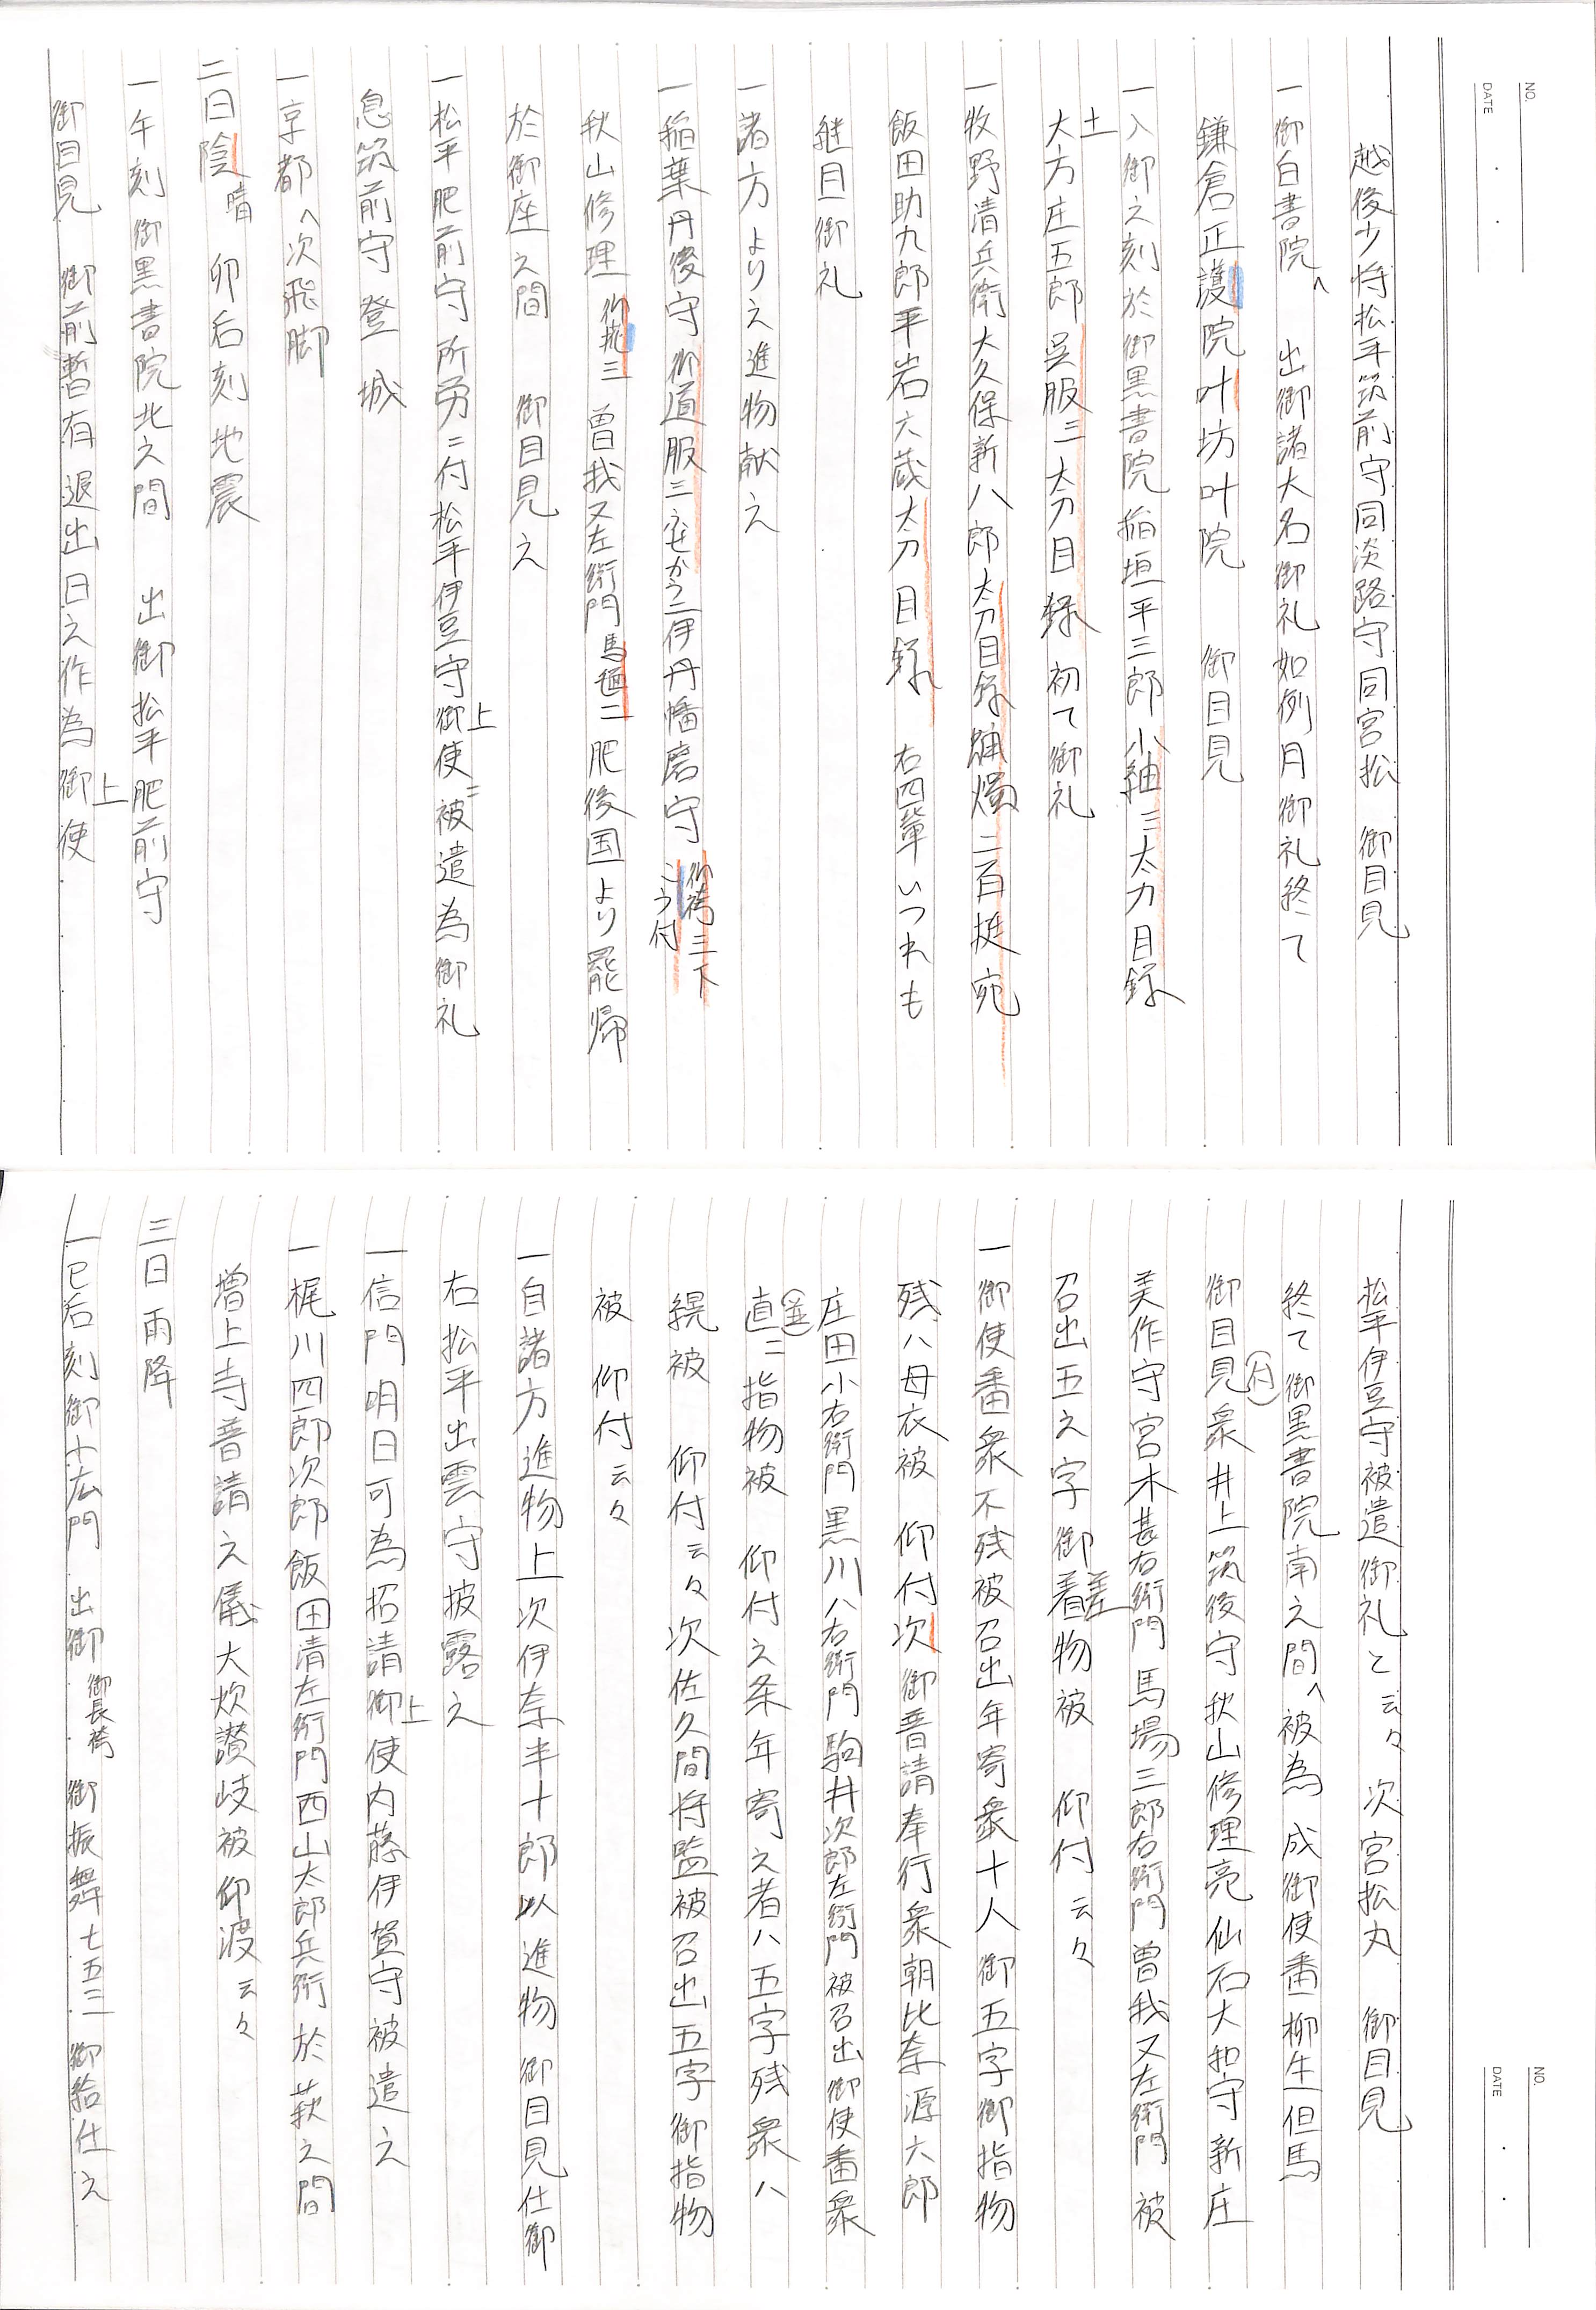 NO.
DATE
越後少将松平筑前守同淡路守同宮松　御目見
一御白書院へ　出御諸大名御礼如例月御礼終て
鎌倉正護院叶坊叶院　御目見
一入御之刻於御黒書院稲垣平三郎小袖三太刀目録
土
大方庄五郎呉服三太刀目録　初て御礼
一牧野清兵衛大久保新八郎太刀目録蝋燭二百挺宛
飯田助九郎平岩六蔵太刀目録　右四輩いつれも
継目御礼
一諸方より之進物献之
一稲葉丹後守御道服三ふせから二伊丹播磨守御袴三下
こう付
秋山修理　御挑三　曽我又左衛門馬氊二　肥後国より罷帰
於御座之間　御目見之
一松平肥前守所労ニ付松平伊豆守御使ニ被遣為御礼
上
息筑前守　登　城
一京都へ次飛脚
二日陰晴　卯后刻地震
一午刻御黒書院北之間　出御松平肥前守
御目見　御前暫有退出日之作為御使
上
NO.
DATE
松平伊豆守被遣御礼と云々　次宮松丸　御目見
終て御黒書院南之間へ被為　成御使番柳生但馬
御目見衆井上筑後守秋山修理亮仙石大和守新庄
美作守宮木甚右衛門馬場三郎右衛門曽我又左衛門被
召出五之字御着物被　仰付云々
差
一御使番衆不残被召出年寄衆十人御五字御指物
残ハ母衣被　仰付次御普請奉行衆朝比奈源六郎
庄田小右衛門黒川八右衛門駒井次郎左衛門被召出御使番衆
直ニ指物被　仰付之条年寄之者ハ五字残衆ハ
幌被　仰付云々次佐久間将監被召出五字御指物
被　仰付云々
一自諸方進物上次伊奈半十郎以進物　御目見仕御
右松平出雲守披露之
一信門明日可為招請御使内藤伊賀守被遣之
上
一梶川四郎次郎飯田清左衛門西山太郎兵衛於萩之間
増上寺普請之儀大炊讃岐被仰渡云々
三日雨降
一巳后刻御大広門　出御　御長袴　御振舞七五三　御給仕之